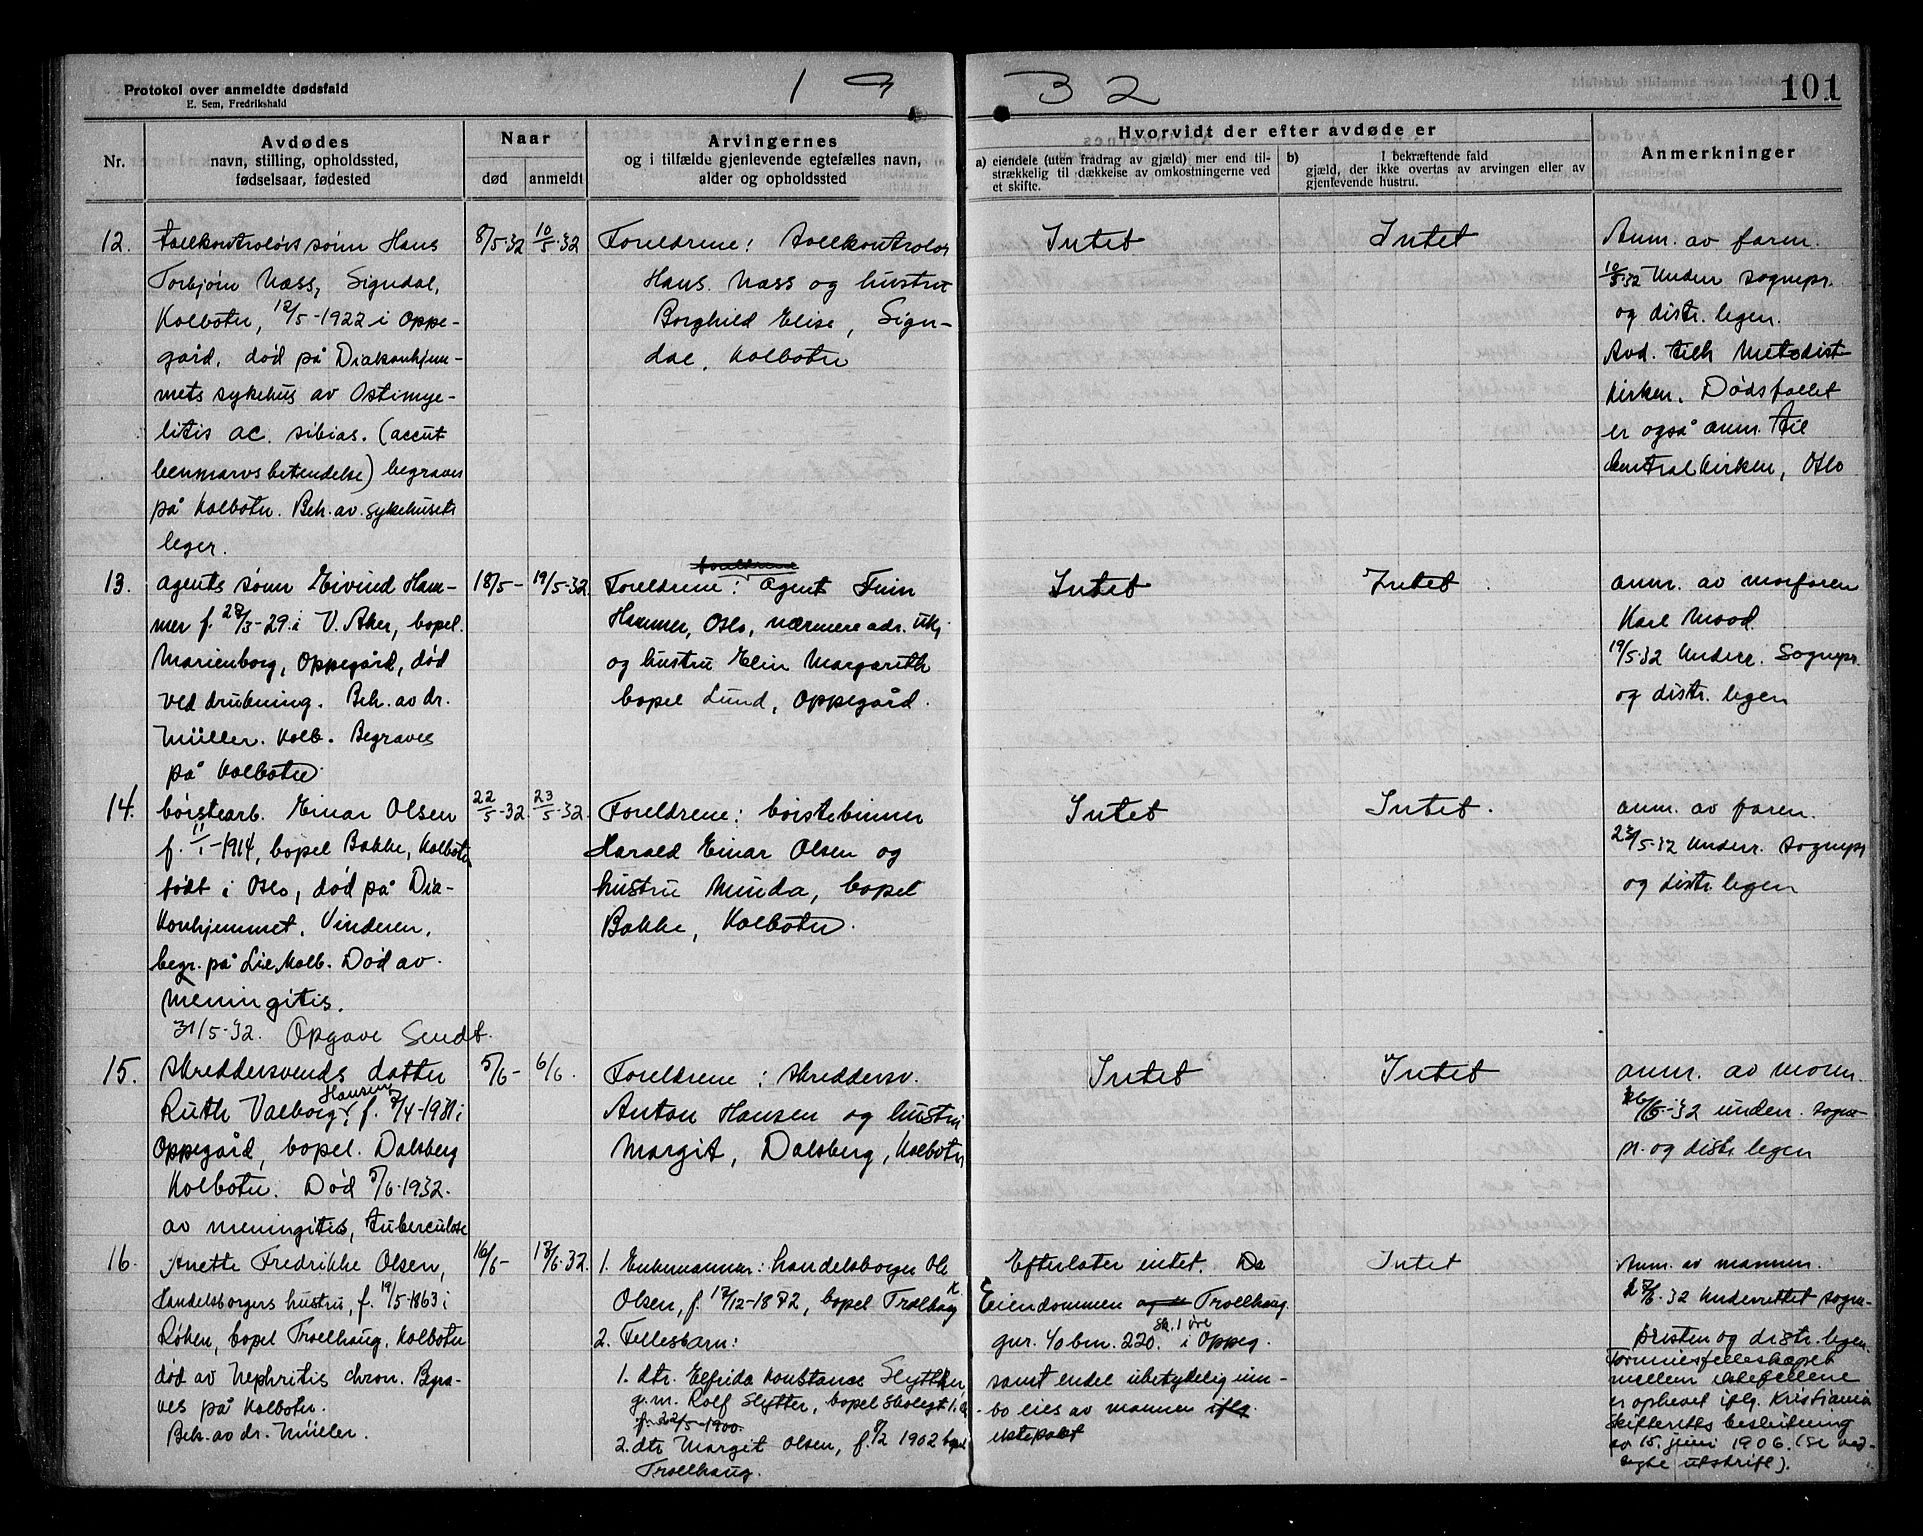 Protokol over anmeldte dødsfald
E. Sem, Fredrikshald
1932
101
Nr.
Avdødes
navn, stilling, opholdssted,
fødselsaar, fødested
Naar
død
anmeldt
Arvingernes
og i tilfælde gjenlevende egtefælles navn,
alder og opholdssted
Hvorvidt der efter avdøde er
a) eiendele (uten fradrag av gjæld) mer end til-
strækkelig til dækkelse av omkostningerne ved
et skifte.
b) I bekræftende fald
gjæld, der ikke overtas av arvingen eller av
gjenlevende hustru.
Anmerkninger
12.
tollkontrolørs sønn Hans
Torbjørn Næss, Signdal,
Kolbotn, 12/5-1922 i Oppe-
gård, død på Diakonhjem-
mets sykehus av Ostimye-
litis ac. tibias. (accut
benmarvsbetendelse) begraves
på Kolbotn. Beh. av sykehusets
leger.
8/5-32
10/5-32
Foreldrene: tollkontrolør
Hans Næss og hustru
Borghild Elise, Sign-
dal, Kolbotn
Intet
Intet
Anm. av faren.
10/5-32 Underr. sognepr.
og distr. legen.
Avd. tilh. Metodist-
kirken. Dødsfallet
er også anm. til
Centralkirken, Oslo
13.
agents sønn Eivind Ham-
mer f. 28/3-29 i V. Aker, bopel.
Marienborg, Oppegård, død
ved drukning. Beh. av dr.
Müller. Kolb. Begraves
på Kolbotn
18/5-
19/5-32
foreldrene
Foreldrene: agent Finn
Hammer, Oslo, nærmere adr. ukj.
og hustru Elin Margareth
bopel Lund, Oppegård.
Intet
Intet.
anm. av morfaren
Karl Mood.
19/5-32 Underr. Sognepr.
og distr. legen
14.
børstearb. Einar Olsen
f. 11/1-1914, bopel Bakke, Kolbotn
født i Oslo, død på Dia-
konhjemmet, Vinderen,
begr. på Lie, Kolb. Død av
Meningitis.
31/5-32. Opgave Sendt.
22/5-32.
23/5-32.
Foreldrene: børstebinner
Harald Einar Olsen og
hustru Minda, bopel
Bakke, Kolbotn.
Intet
Intet.
anm. av faren.
23/5-32 Underr. sognepr
og distr. legen
15.
skreddersvends datter
Hansen,
Ruth Valborg f. 7/4-1931 i
Oppegård, bopel. Dalsberg
Kolbotn. Død 5/6-1932.
av meningitis, tuberculose
5/6-
6/6.
Foreldrene: skreddersv.
Anton Hansen og hustru
Margit, Dalsberg, Kolbotn
Intet
Intet
anm. av moren.
6/6-32 underr. sogne-
pr. og distr. legen
16.
Anette Fredrikke Olsen,
Handelsborgers hustru, f. 19/5-1863 i
Røken, bopel Trollhaug, Kolbotn
død av Nephritis chron. Begra-
ves på Kolbotn.
Beh. av dr. Müller.
16/6-
17/6.32.
1. Enkemannen: handelsborger Ole
Olsen, f. 17/12-1872, bopel Trollhaug K.
2. Fellesbarn:
1. dtr. Elfrida Konstanse Slytter,
g.m. Rolf Slytter, bopel
f. 22/5-1900.
2. dtr Margit Olsen, f. 8/2 1902 bopel
Trollhaug.
Efterlater intet. Da
Eiendommen og Trollhaug.
sk. 1 øre
gnr. 40 bnr. 220. i Oppeg.
samt endel ubetydelig inn-
bo eies av mannen iflg.
ektepakt
Intet
Anm. av mannen.
17/6-32 Underrettet sogne-
presten og distr. legen.
Formuesfelleskapet
mellem ektefellene
er ophevet iflg. Kristiania
skifteretts beslutning
av 15. juni 1906. (Se ved-
lagte utskrift).